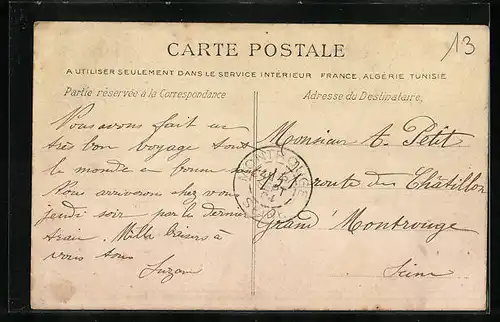 13
CARTE POSTALE
A UTILISER SEULEMENT DANS LE SERVICE INTÉRIEUR FRANCE, ALGÉRIE TUNISIE
Partie réservée à la Correspondance
Adresse du Destinataire,
Nous avons fait un
très bon voyage tout
le monde en bonne
Nous arriverons chez vous
jeudi soir par le dernier
train. Mille baisers à
vous tous
Suzanne
MONTROUGE
SEINE
Monsieur A. Petit
route de Châtillon
Grand Montrouge
Seine